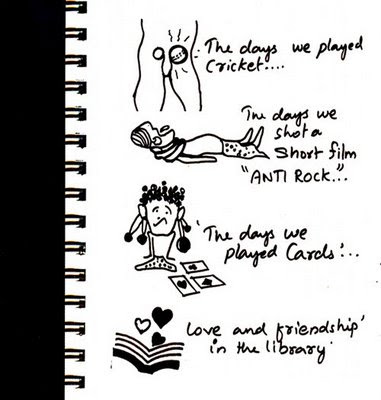 The days we played
Cricket....
The days we
shot a
Short film
"ANTI ROCK..."
'The days we
played Cards'...
love and friendship'
in the library